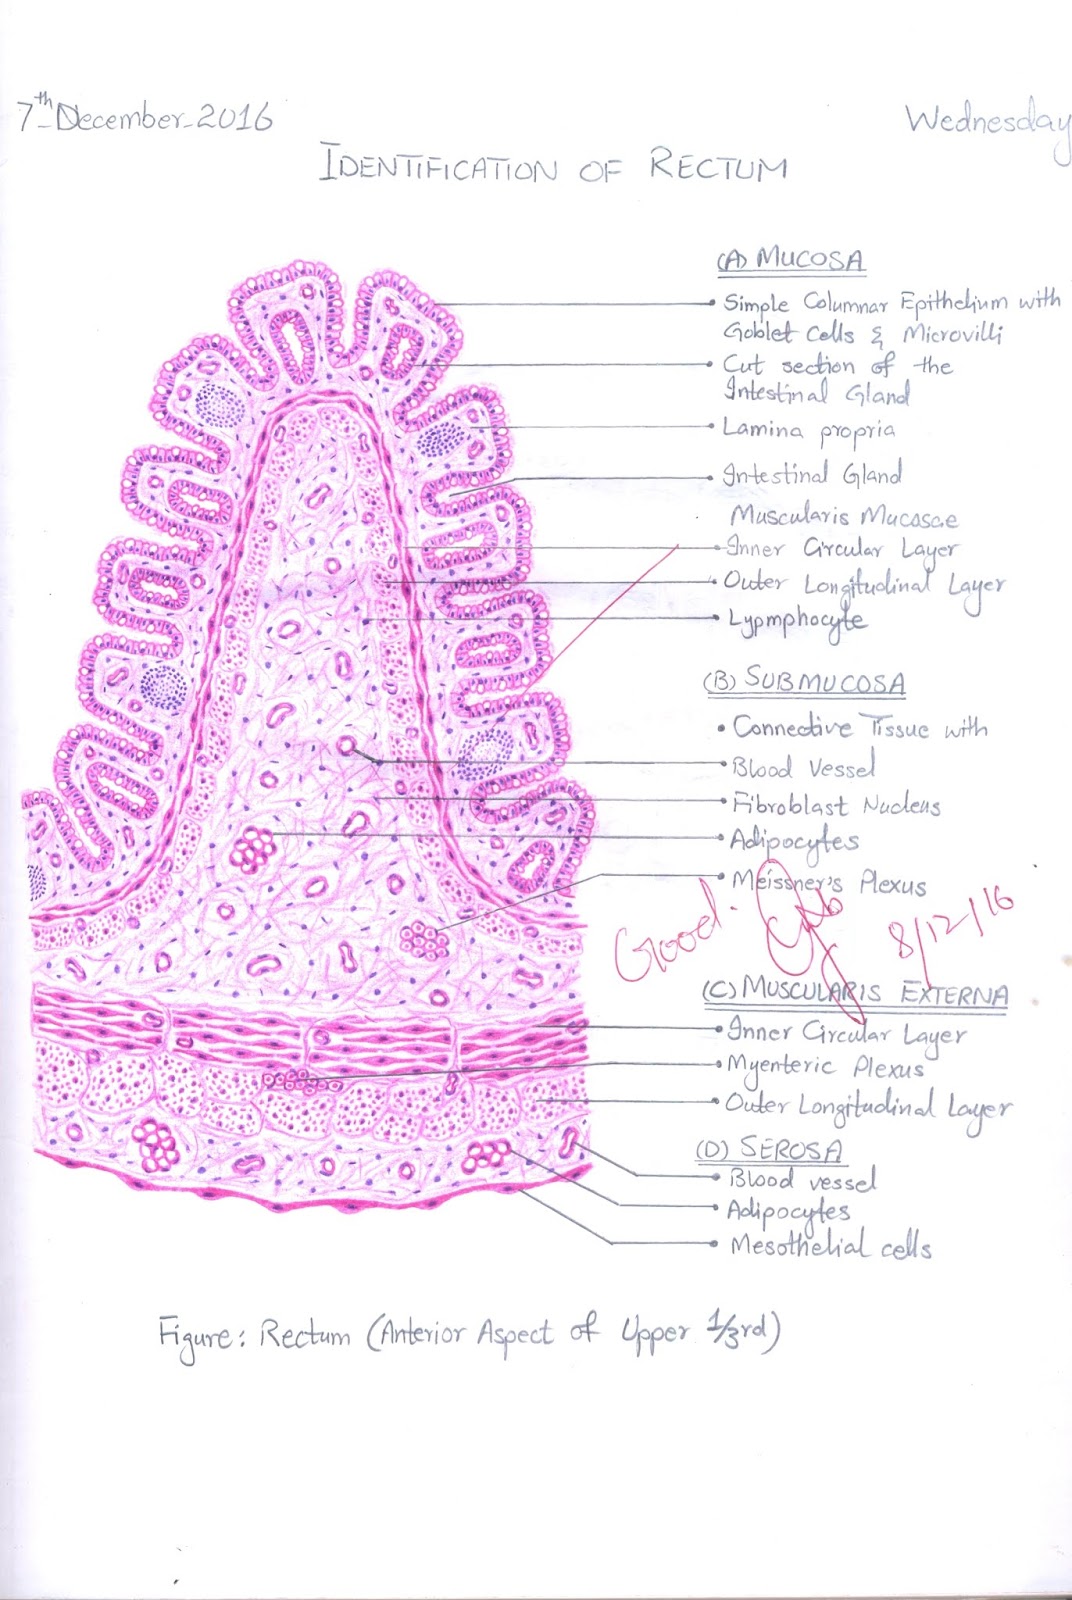 7th December-2016
Wednesday
IDENTIFICATION OF RECTUM
(A) MUCOSA
Simple Columnar Epithelium with
Goblet Cells & Microvilli
Cut section of the
Intestinal Gland
Lamina propria
Intestinal Gland
Muscularis Mucosae
Inner Circular Layer
Outer Longitudinal Layer
Lypmphocyte
(B) SUBMUCOSA
• Connective Tissue with
Blood Vessel
Fibroblast Nucleus
Adipocytes
Meissner's Plexus
Good.
8/12/16
(C) MUSCULARIS EXTERNA
Inner Circular Layer
Myenteric Plexus
Outer Longitudinal Layer
(D) SEROSA
Blood vessel
Adipocytes
Mesothelial cells
Figure: Rectum (Anterior Aspect of Upper 1/3rd)